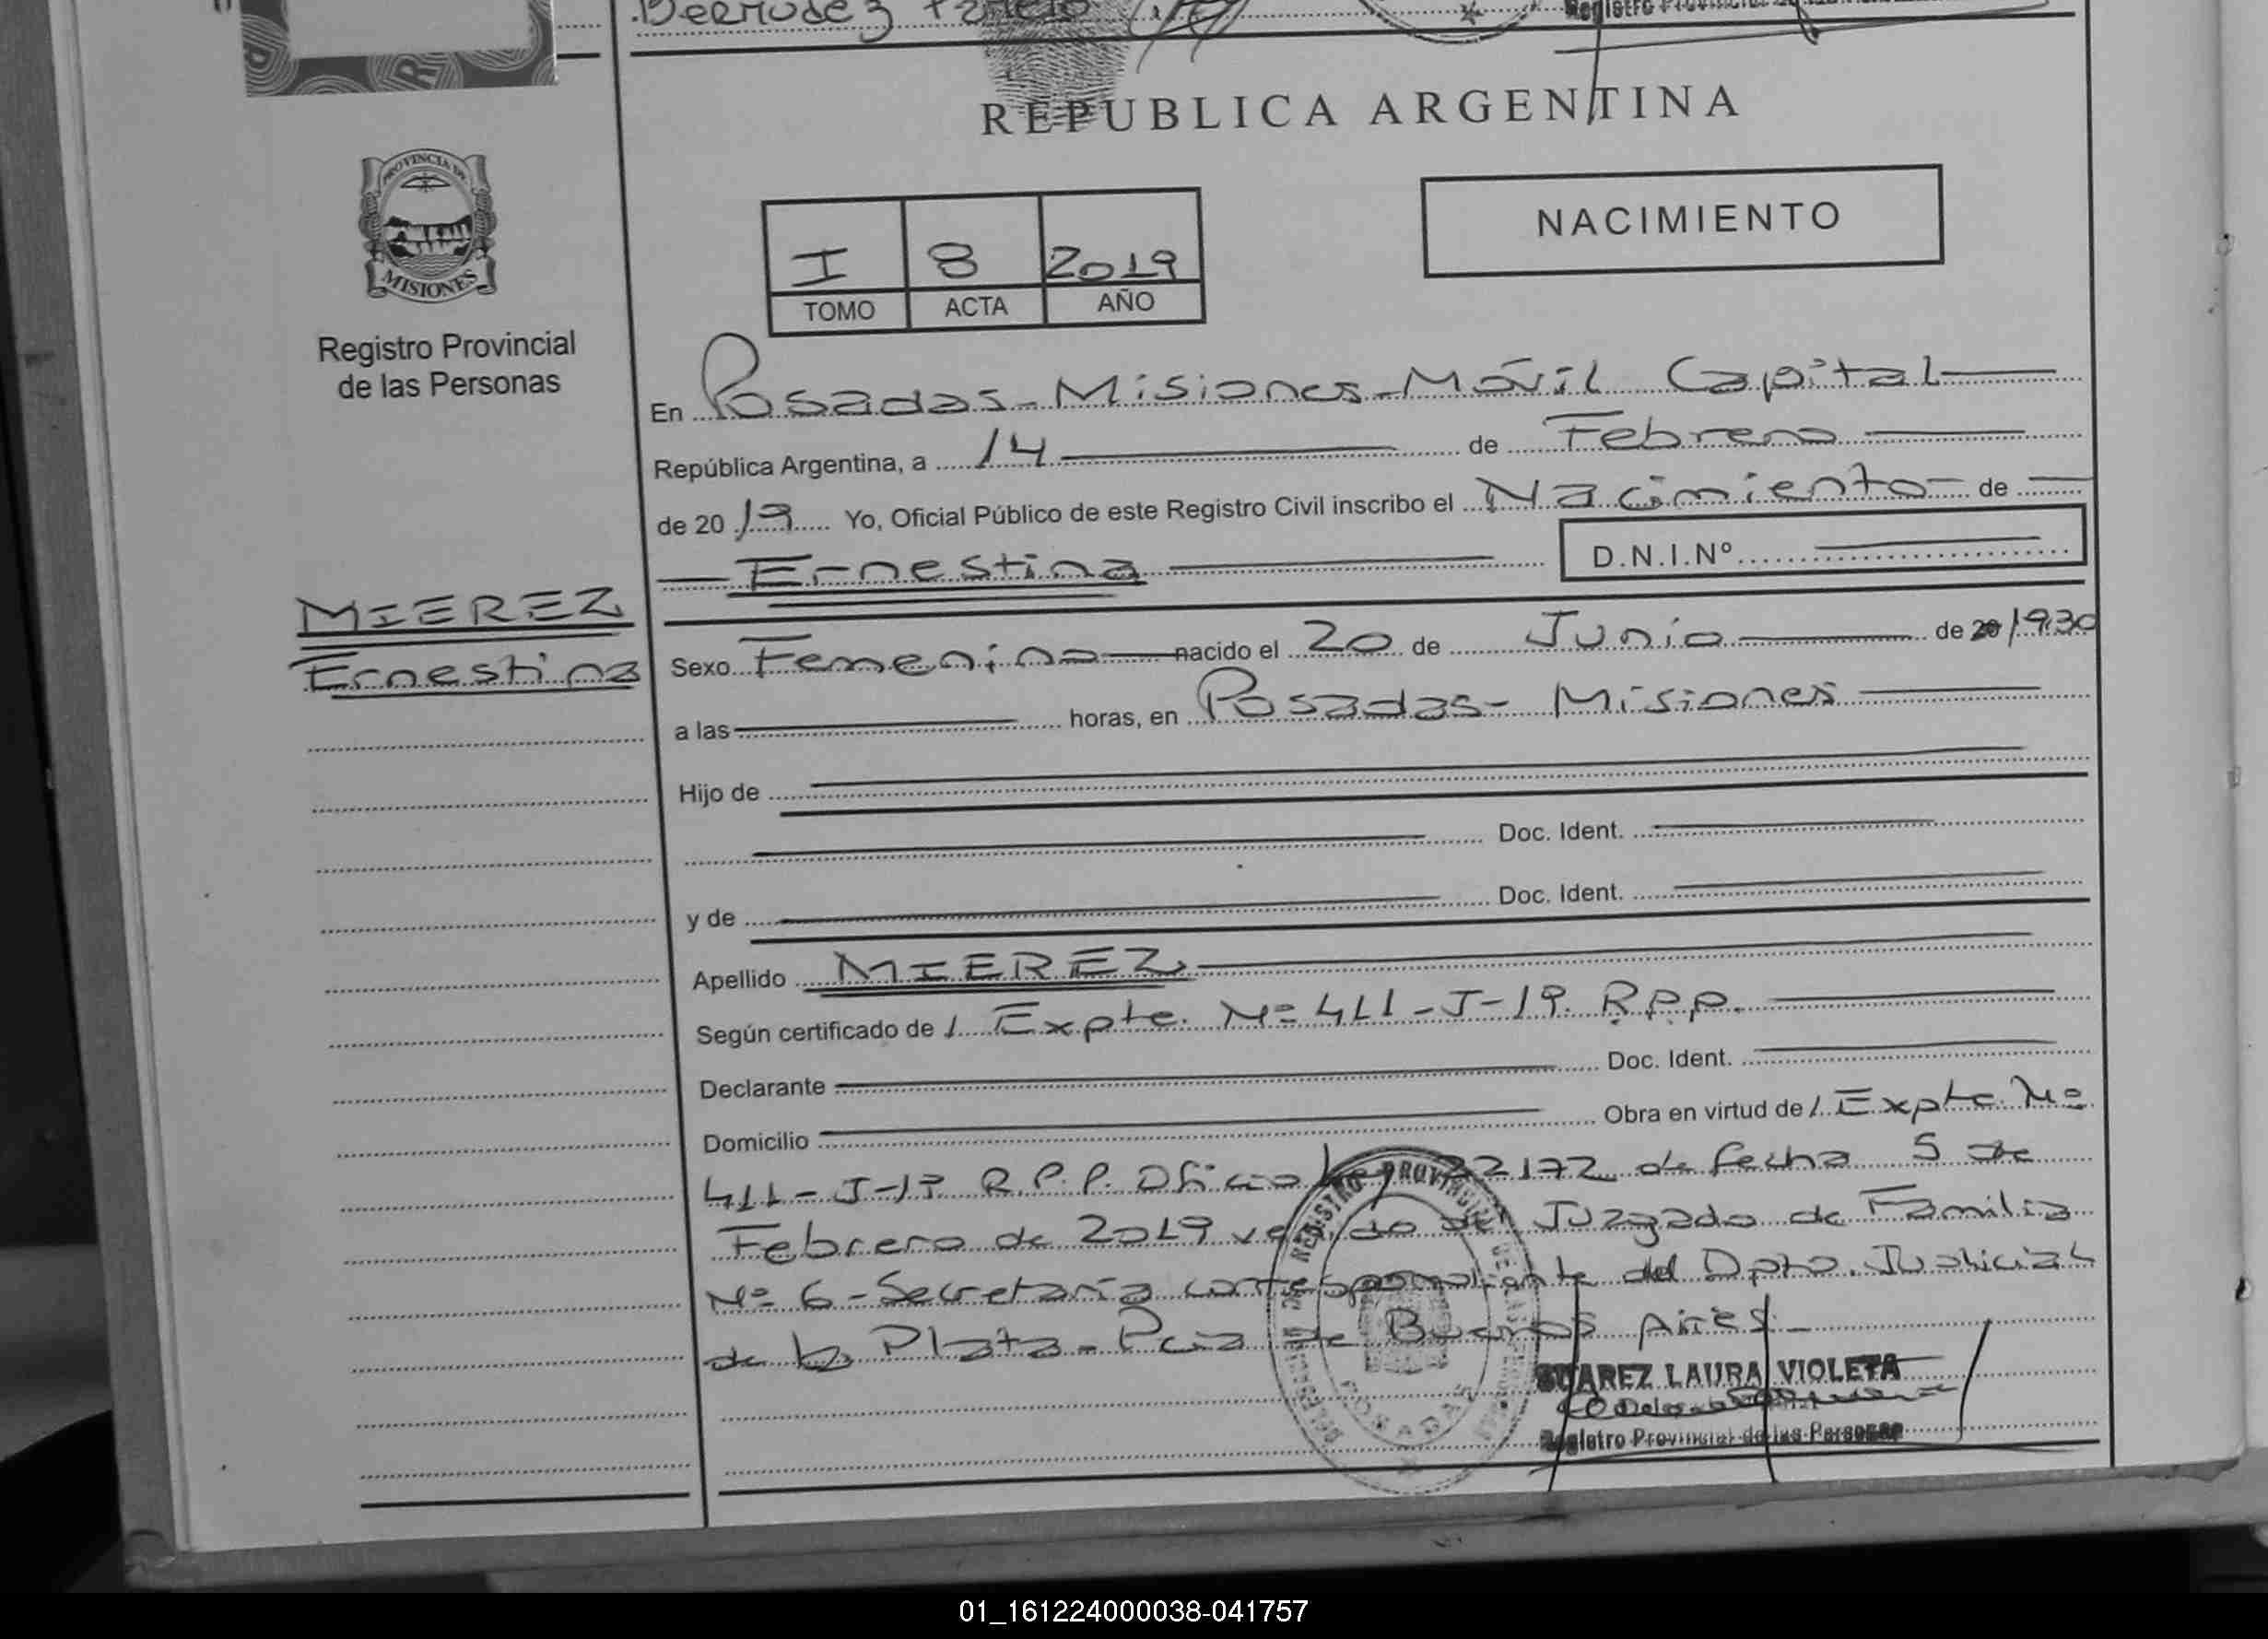 Bermudez
Registro Provincial
REPUBLICA ARGENTINA
PROVINCIA DE
MISIONES
Registro Provincial
de las Personas
I 8 2019
TOMO ACTA AÑO
NACIMIENTO
En Posadas - Misiones - Móvil Capital
República Argentina, a 14 de Febrero
de 2019 Yo, Oficial Público de este Registro Civil inscribo el Nacimiento de
Ernestina D.N.I.Nº
MIEREZ
Ernestina
Sexo Femenino nacido el 20 de Junio de 20 1930
a las horas, en Posadas - Misiones
Hijo de
Doc. Ident.
y de Doc. Ident.
Apellido MIEREZ
Según certificado de / Expte. Nº 411 - J - 19. R.P.P.
Declarante Doc. Ident.
Domicilio Obra en virtud de / Expte. Nº
411 - J - 19 R.P.P. Oficio 22172 de fecha 5 de
Febrero de 2019 del Juzgado de Familia
Nº 6 - Secretaría correspondiente del Dpto. Judicial
de La Plata - Pcia de Buenos Aires -
SUAREZ LAURA VIOLETA
Registro Provincial de las Personas
POSADAS
01_161224000038-041757